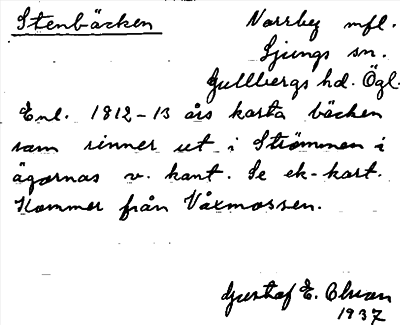 Stenbäcken
Norrby mfl.
Ljungs sn.
Gullbergs hd. Ögl.
Enl. 1812-13 års karta bäcken
som rinner ut i Strömmen i
ägornas v. kant. Se ek-kart.
Kommer från Våxmossen.
Gustaf E. Olsson
1937